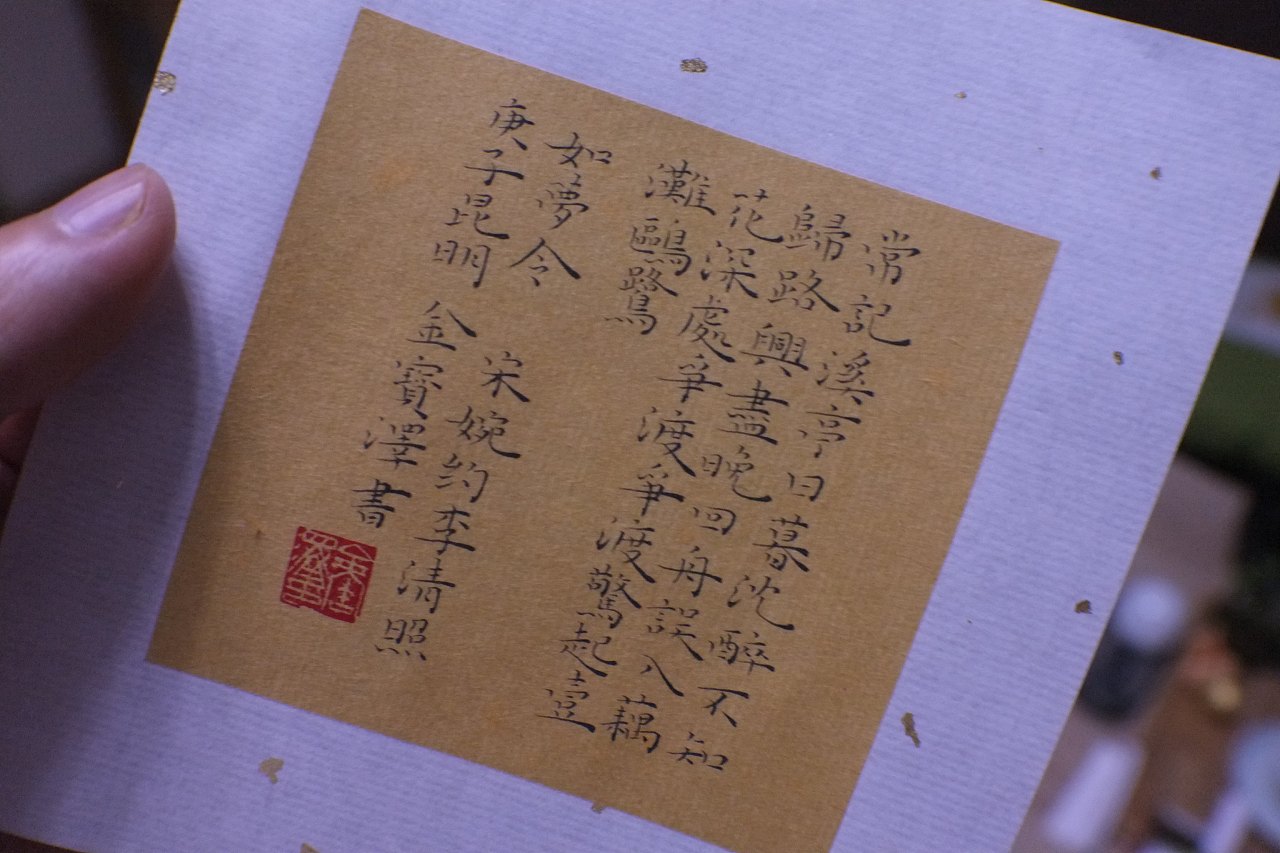 常記溪亭日暮沈醉不知
歸路興盡晚回舟誤入藕
花深處爭渡爭渡驚起壹
灘鷗鷺
如夢令 宋婉约李清照
庚子昆明 金寶澤書